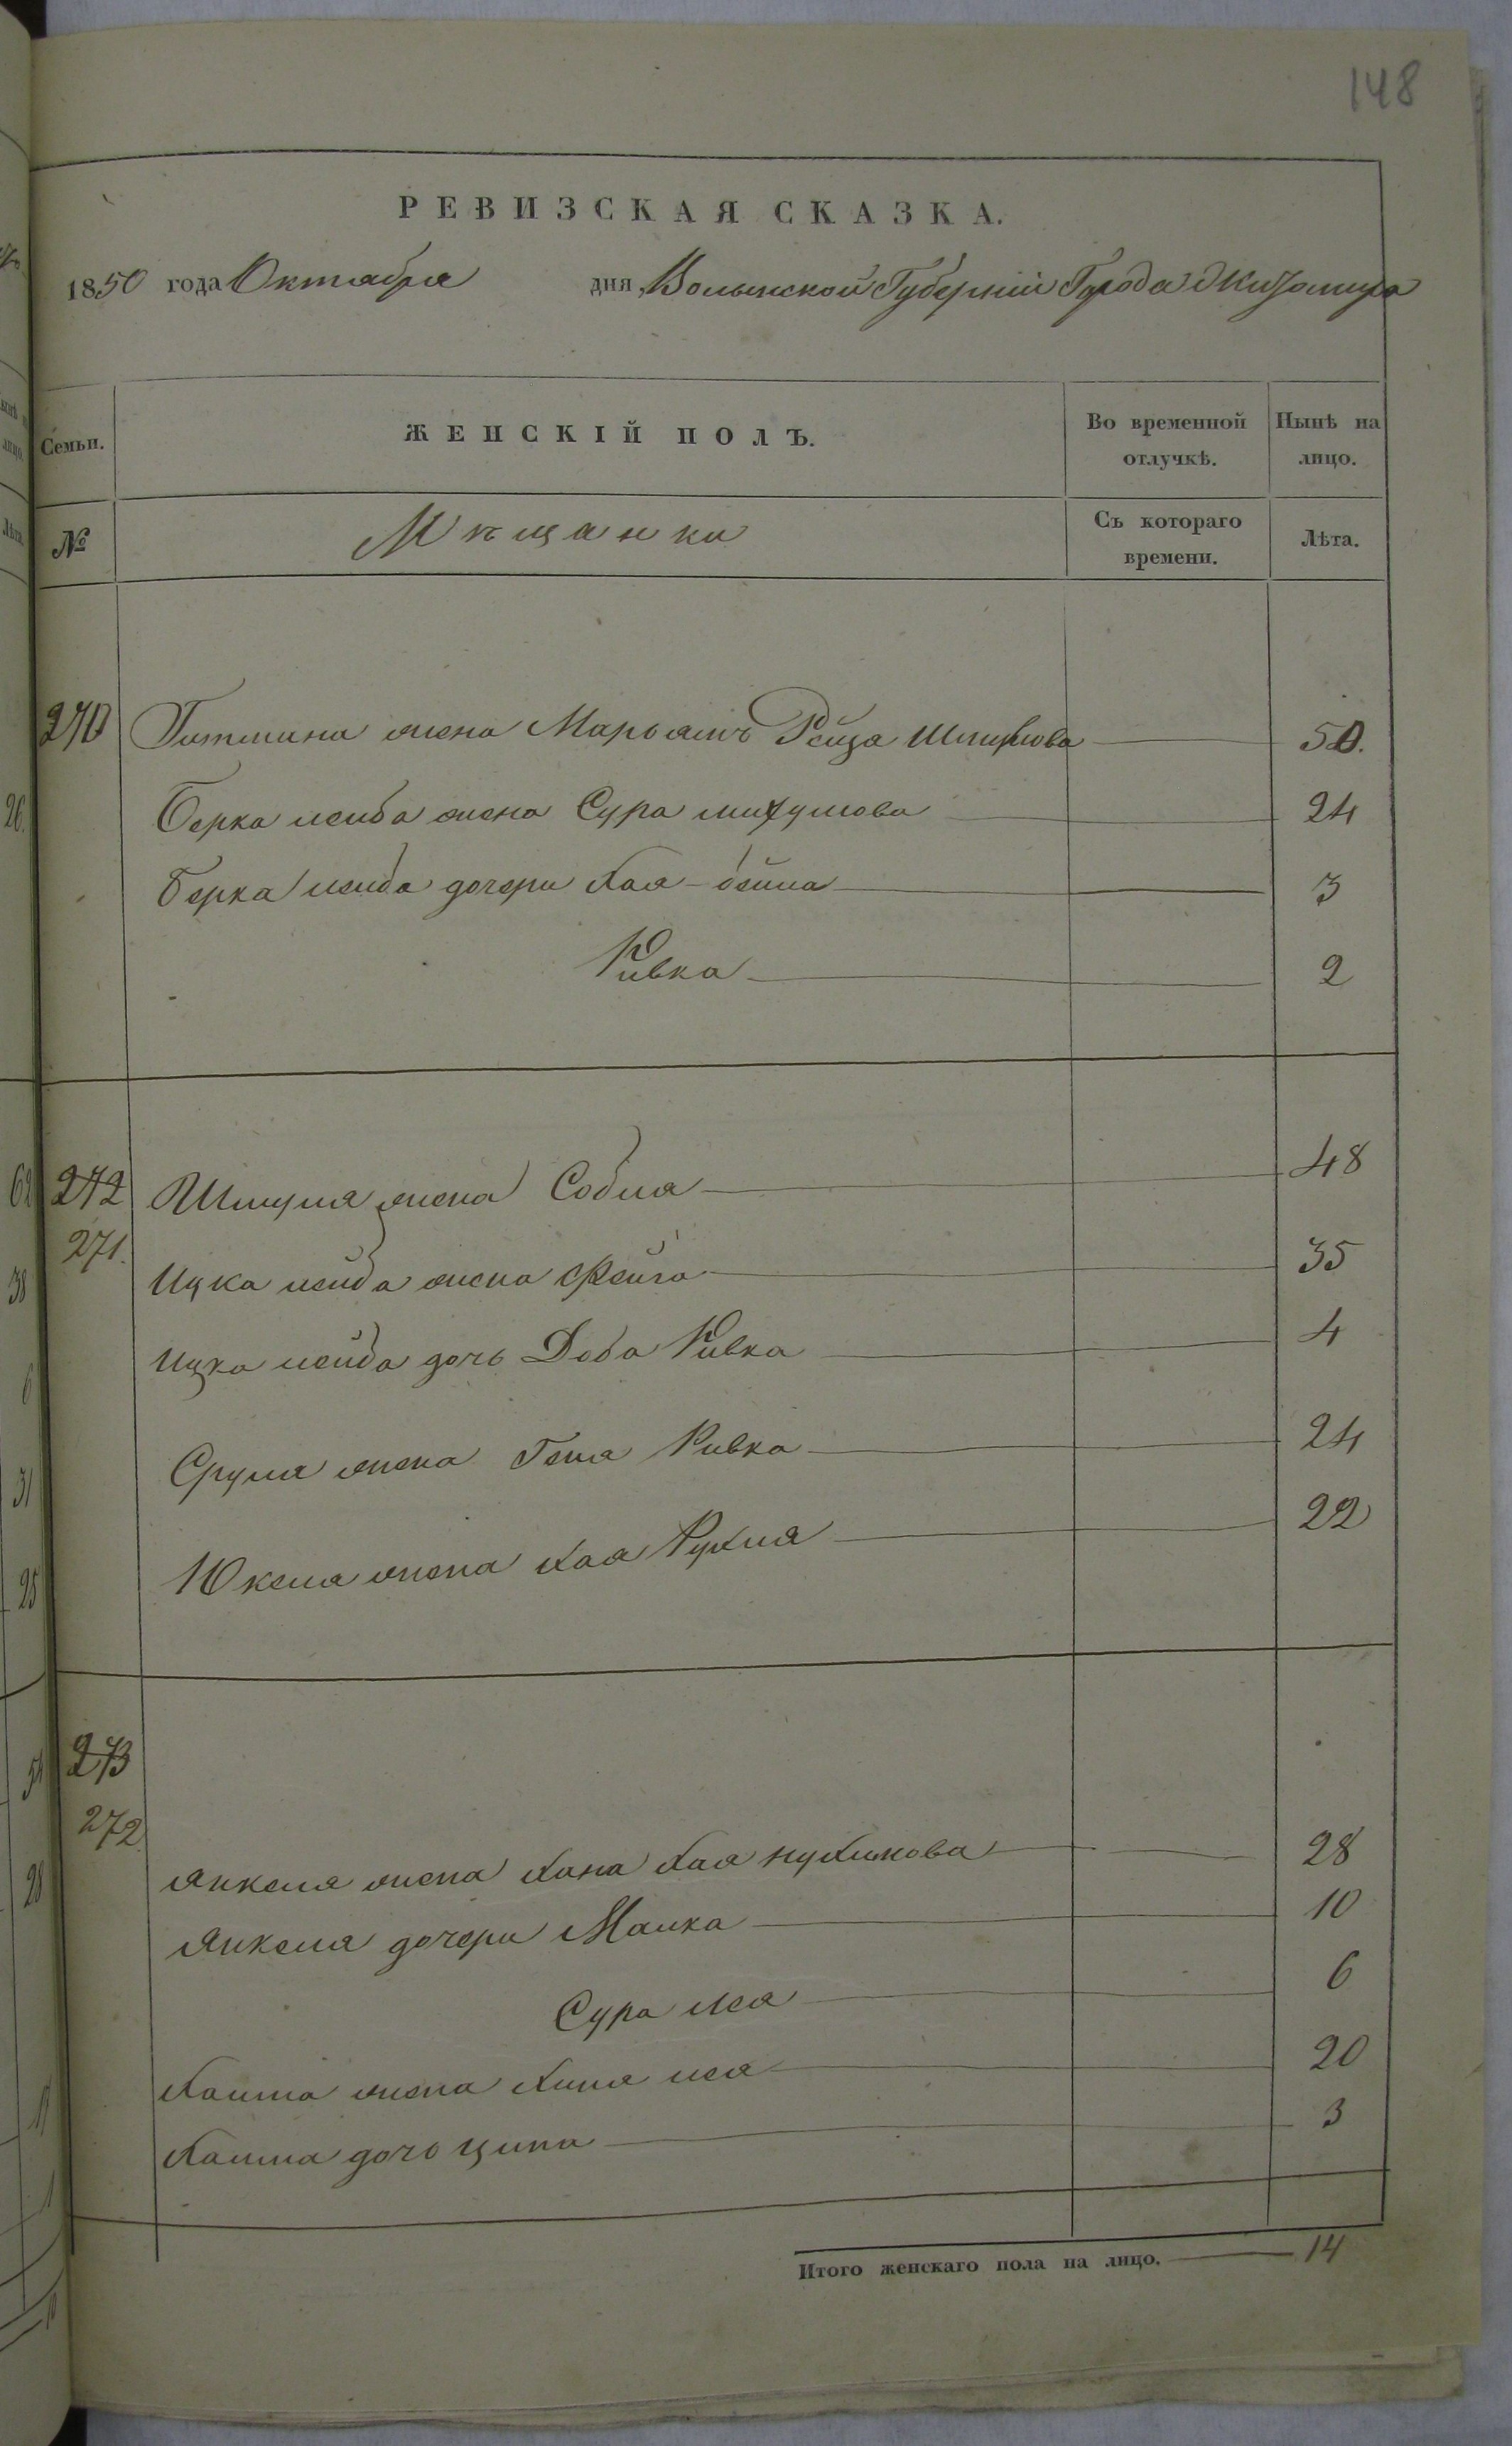 148
РЕВИЗСКАЯ СКАЗКА.
1850 года Октября дня, Волынской Губерніи Города Житомира
Семьи. ЖЕНСКІЙ ПОЛЪ. Во временной отлучкѣ. Нынѣ на лицо.
№ Мѣщанки Съ котораго времени. Лѣта.
270 жена Марьямъ Рейза Шмулюва 50.
Берка лейба жена Сура 24
Берка лейба дочери Хая-бейла 3
Ривка 2
272 Шмуля жена Собля 48
271. Ицка лейба жена Фейга 35
Ицка лейба дочь Доба Ривка 4
Сруля жена Геня Ривка 24
Юкеля жена Хая Рухля 22
273
272 Янкеля жена Хана Хая нухимова 28
Янкеля дочери Малка 10
Сура лея 6
Хаима жена лея 20
Хаима дочь ципа 3
Итого женскаго пола на лицо. 14
26.
62
38
6
31
25
28